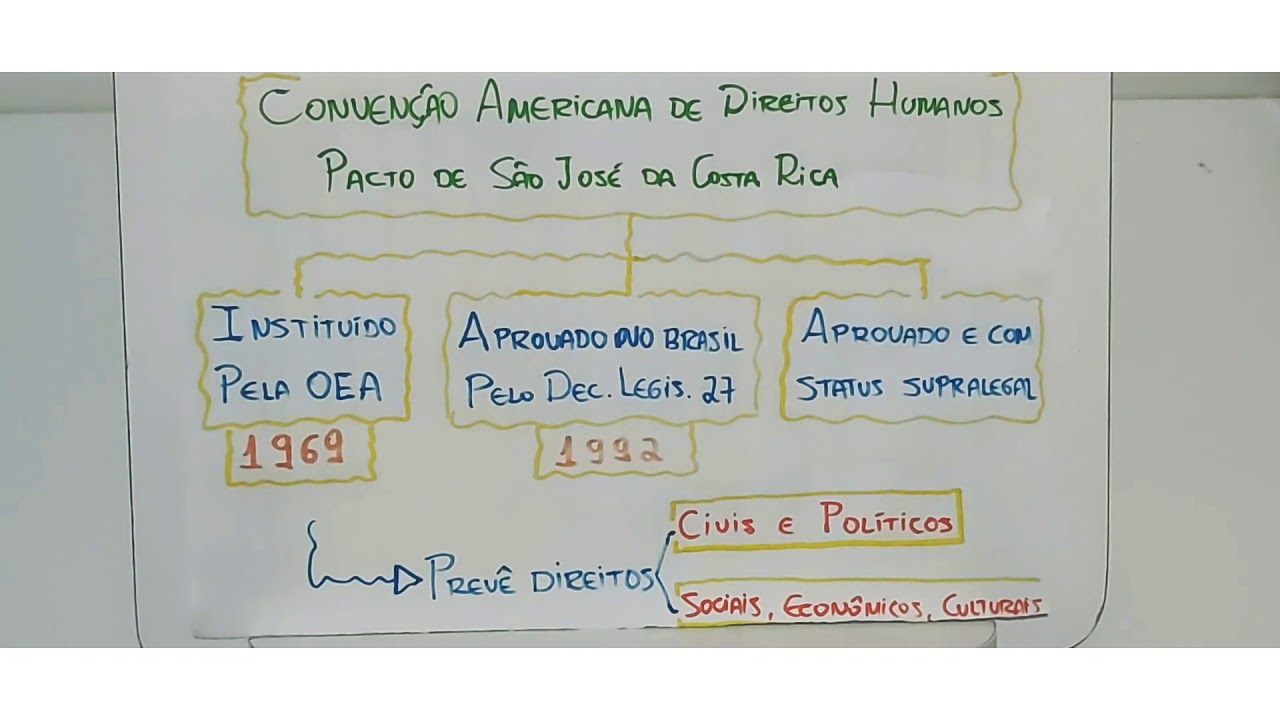 CONVENÇÃO AMERICANA DE DIREITOS HUMANOS
PACTO DE SÃO JOSÉ DA COSTA RICA
INSTITUÍDO
PELA OEA
1969
APROVADO NO BRASIL
PELO DEC. LEGIS. 27
1992
APROVADO E COM
STATUS SUPRALEGAL
PREVÊ DIREITOS
CIVIS E POLÍTICOS
SOCIAIS, ECONÔMICOS, CULTURAIS